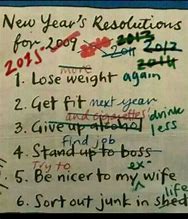 New Year's Resolutions
for 2009 2010 2013 2012
2015 2011 2014
more
1. Lose weight again
2. Get fit next year
and cigarettes drink
3. Give up alcohol less
find job
4. Stand up to boss
Try to ex-
5. Be nicer to my wife
life
6. Sort out junk in shed